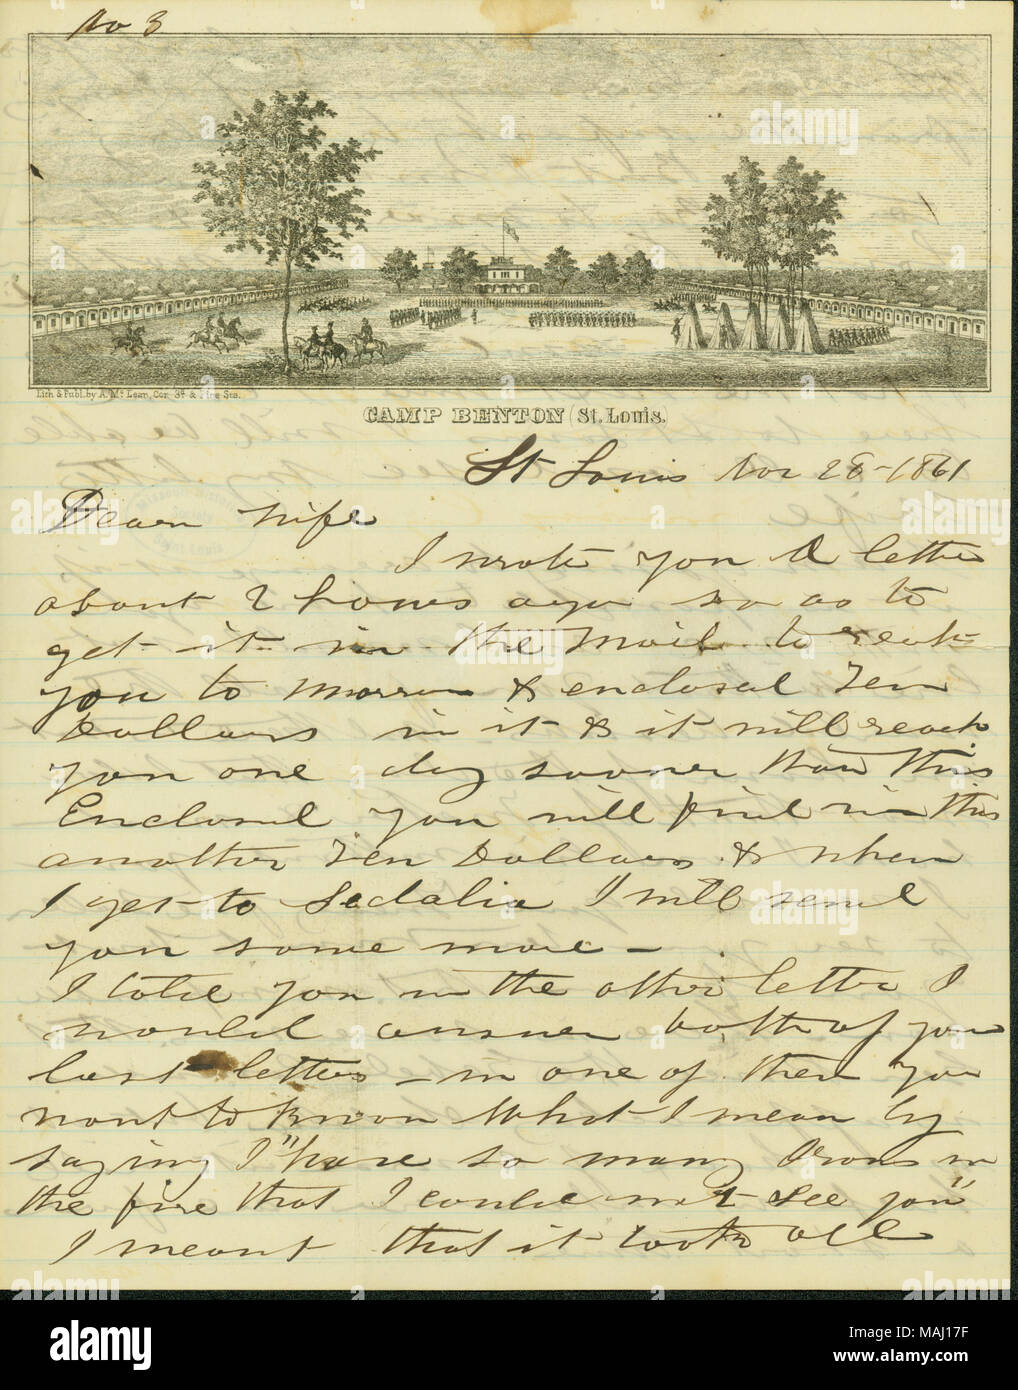 No 3
Lith & Publ. by A. Mc Lean, Cor. 3d & Pine Sts.
CAMP BENTON (St. Louis.
St Louis Nov 28-1861
Dear Wife
I wrote you A letter
about 2 hours ago so as to
get it in the Mail to reach
you to Morrow & enclosed Ten
Dollars in it & it will reach
you one day sooner than this
Enclosed you will find in this
another Ten Dollars & when
I get to Sedalia I will send
you some more -
I told you in the other letter I
would answer both of your
last letters - in one of them you
want to know What I mean by
saying I "have so many Irons in
the fire that I could not see you"
I meant that it took all
alamy
Image ID: MAJ17F
www.alamy.com